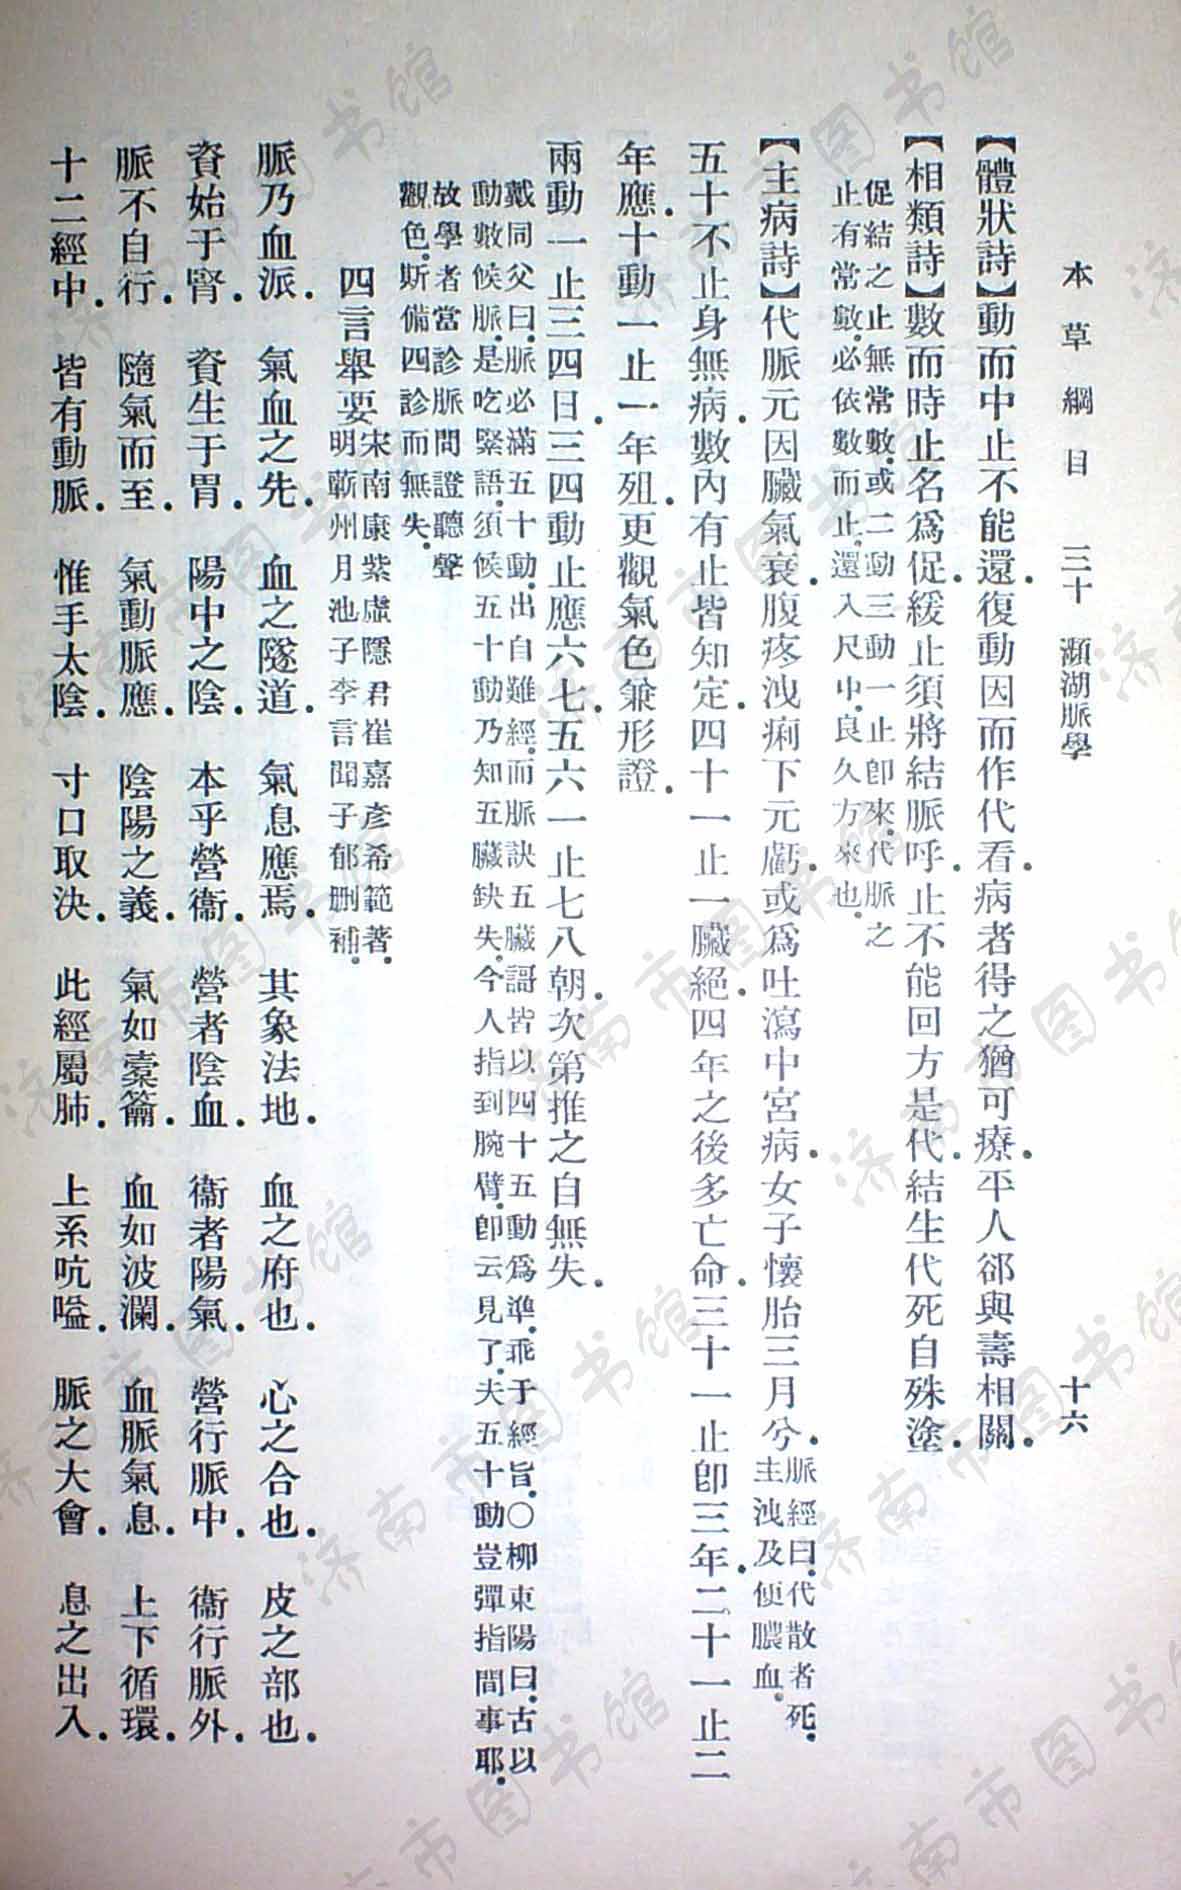 本草綱目 三十 瀕湖脈學 十六
【體狀詩】動而中止不能還.復動因而作代看.病者得之猶可療.平人卻與壽相關.
【相類詩】數而時止名爲促.緩止須將結脈呼.止不能回方是代.結生代死自殊塗.
促結之止無常數.或二動三動一止卽來.代脈之
止有常數.必依數而止.還入尺中.良久方來也.
【主病詩】代脈元因臟氣衰.腹疼洩痢下元虧.或爲吐瀉中宮病.女子懷胎三月兮.
脈經曰.代散者死.
主洩及便膿血.
五十不止身無病.數內有止皆知定.四十一止一臟絕.四年之後多亡命.三十一止卽三年.二十一止二
年應.十動一止一年殂.更觀氣色兼形證.
兩動一止三四日.三四動止應六七.五六一止七八朝.次第推之自無失.
戴同父曰.脈必滿五十動.出自難經.而脈訣五臟謌皆以四十五動爲準.乖于經旨.○柳東陽曰.古以
動數候脈.是吃緊語.須候五十動乃知五臟缺失.今人指到腕臂.卽云見了.夫五十動豈彈指間事耶.
故學者當診脈問證聽聲
觀色.斯備四診而無失.
四言舉要
宋南康紫虛隱君崔嘉彥希範著.
明蘄州月池子李言聞子郁刪補.
脈乃血派.氣血之先.血之隧道.氣息應焉.其象法地.血之府也.心之合也.皮之部也.
資始于腎.資生于胃.陽中之陰.本乎營衞.營者陰血.衞者陽氣.營行脈中.衞行脈外.
脈不自行.隨氣而至.氣動脈應.陰陽之義.氣如橐籥.血如波瀾.血脈氣息.上下循環.
十二經中.皆有動脈.惟手太陰.寸口取決.此經屬肺.上系吭嗌.脈之大會.息之出入.